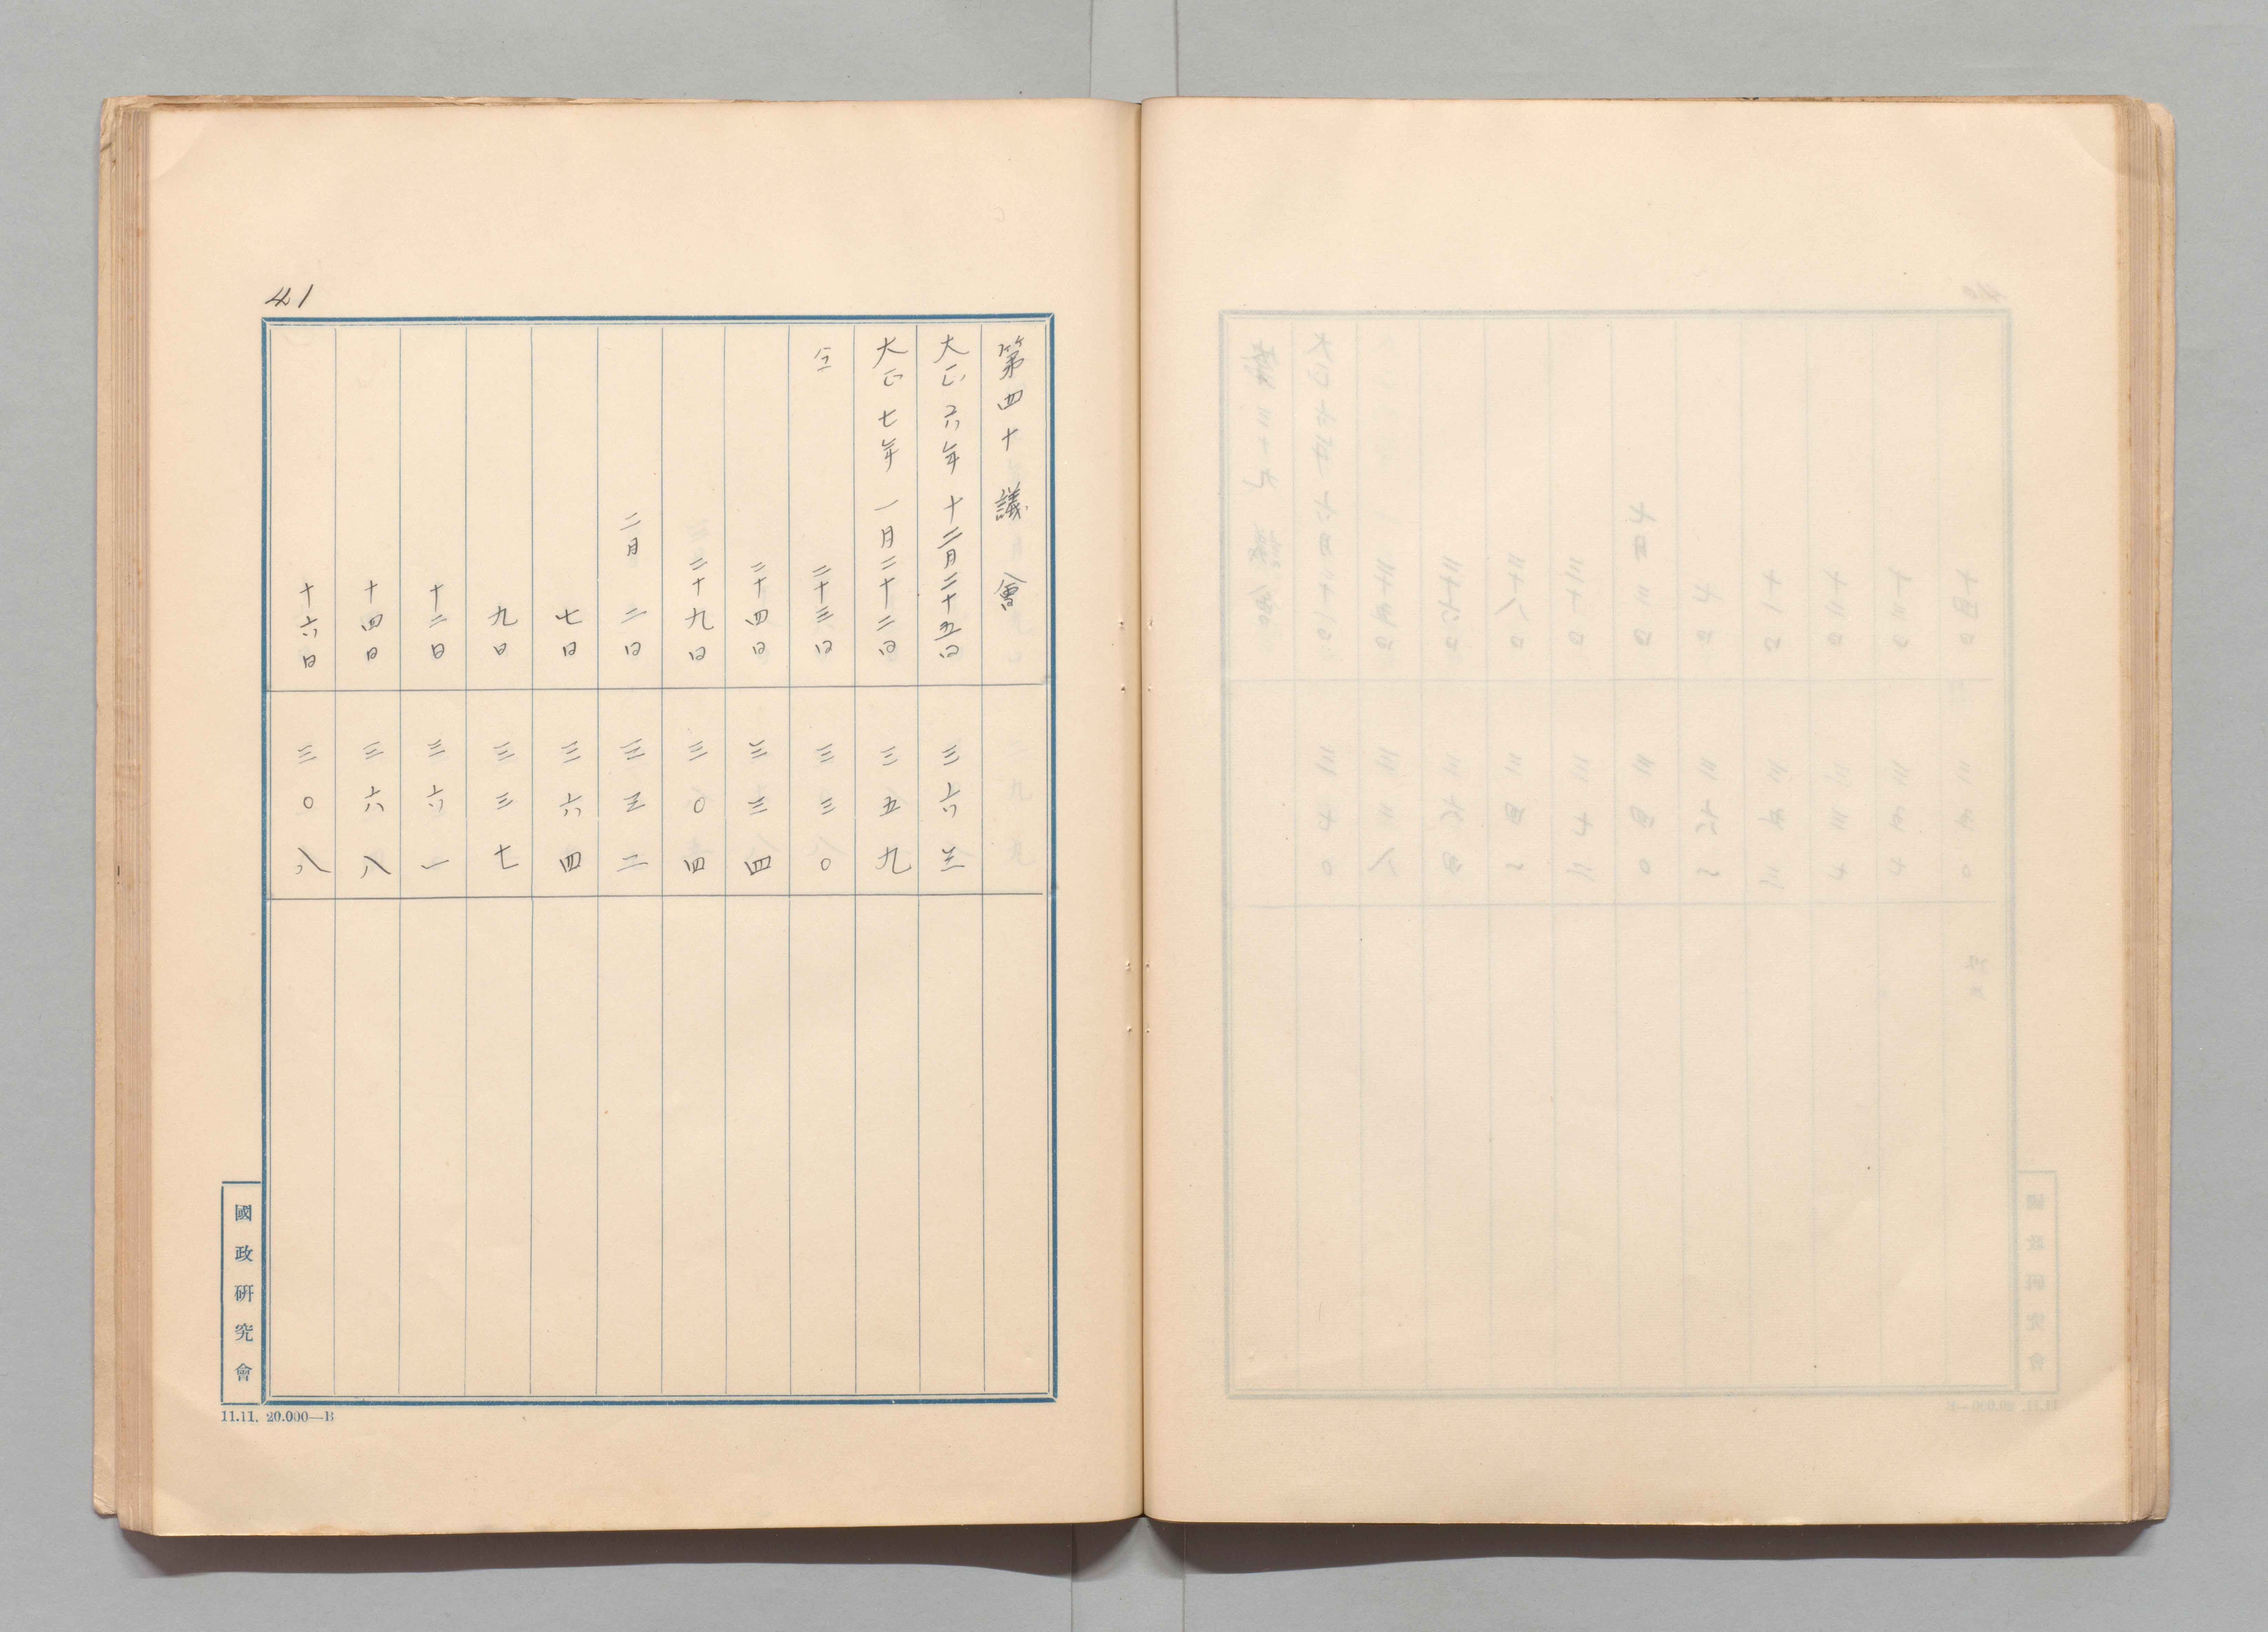 41
第四十議會
大正六年十二月二十五日 三六三
大正七年一月二十二日 三五九
仝 二十三日 三三〇
二十四日 三三四
二十九日 三〇四
二月 二日 三三二
七日 三六四
九日 三三七
十二日 三六一
十四日 三六八
十六日 三〇八
國政研究會
11.11. 20.000—B